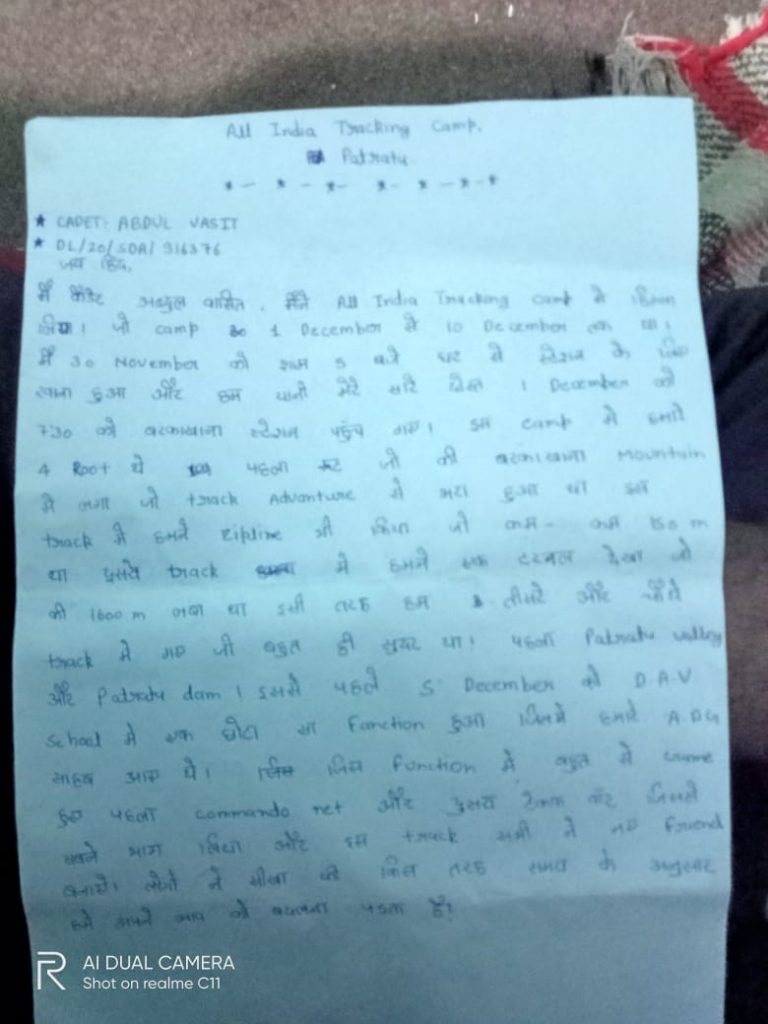 All India Tracking Camp.
Patratu
* - * - * - * - * - * - *
* CADET: ABDUL VASIT
* DL/20/SDA/ 916376
जय हिंद,
मैं कैडेट अब्दुल वासित, मैंने All India Tracking Camp में हिस्सा
लिया। जो camp 1 December से 10 December तक था।
मैं 30 November को शाम 5 बजे घर से स्टेशन के लिए
रवाना हुआ और हम यानी मेरे सारे दोस्त 1 December को
730 को बरकाखाना स्टेशन पहुँच गए। इस camp में हमारे
4 Root थे पहला रूट जो की बरकाखाना Mountain
में लगा जो track Advanture से भरा हुआ था इस
track में हमने Zipline भी किया जो कम-कम 150 m
था दुसरे track में हमने एक टनल देखा जो
की 1600 m लंबा था इसी तरह हम तीसरे और चौथे
track में गए जो बहुत ही सुन्दर था। पहला Patratu valley
और Patratu dam। इससे पहले 5 December को D.A.V
School में एक छोटा सा Fanction हुआ जिसमे हमारे A.D.G
साहब आए थे। जिस Function में बहुत से Game
हुए पहला commando net और दुसरा जिसमे
सबने भाग लिया और इस track सभी ने नए Friend
बनाये। लोगो ने सीखा की किस तरह समय के अनुसार
हमे अपने आप को बदलना पड़ता है।
AI DUAL CAMERA
Shot on realme C11